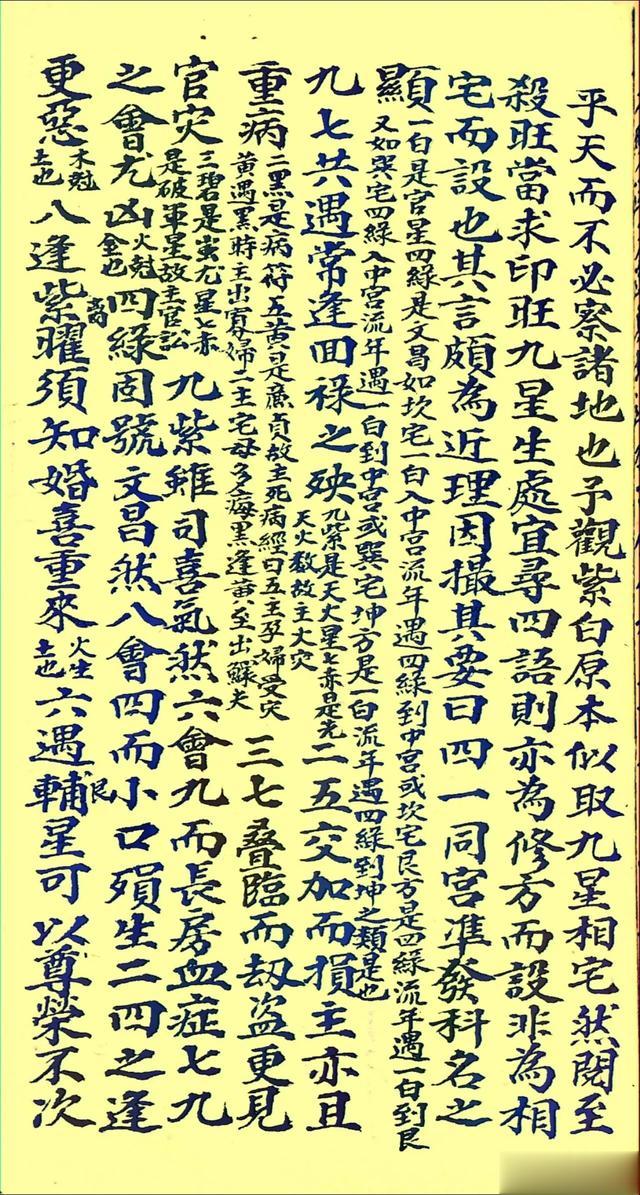 乎天而不必察諸地也予觀紫白原本似取九星相宅然閱至
殺旺當求印旺九星生處宜尋四語則亦為修方而設非為相
宅而設也其言頗為近理因撮其要曰四一同宮準發科名之
顯
一白是官星四綠是文昌如坎宅一白入中宮流年遇四綠到中宮或坎宅艮方是四綠流年遇一白到艮
又如巽宅四綠入中宮流年遇一白到中宮或巽宅坤方是一白流年遇四綠到坤之類是也
九七共遇常逢囬祿之殃
九紫是天火星七赤是先
天火数故主火灾
二五交加而損主亦且
重病
二黑是病符五黄是廉貞故主死病經曰五主孕婦受灾
黄遇黑時主出寡婦二主宅母多病黑逢黄至出鰥夫
三七疊臨而刼盗更見
官灾
三碧是蚩尤星七赤
是破軍星故主官訟
九紫雖司喜氣然六會九而長房血症七九
之會尤凶
火尅
金也
四綠固號文昌然八會四而小口殞生二四之逢
更惡
木尅
土也
八逢紫曜須知婚喜重來
離
火生
土也
六遇輔星可以尊榮不次
艮